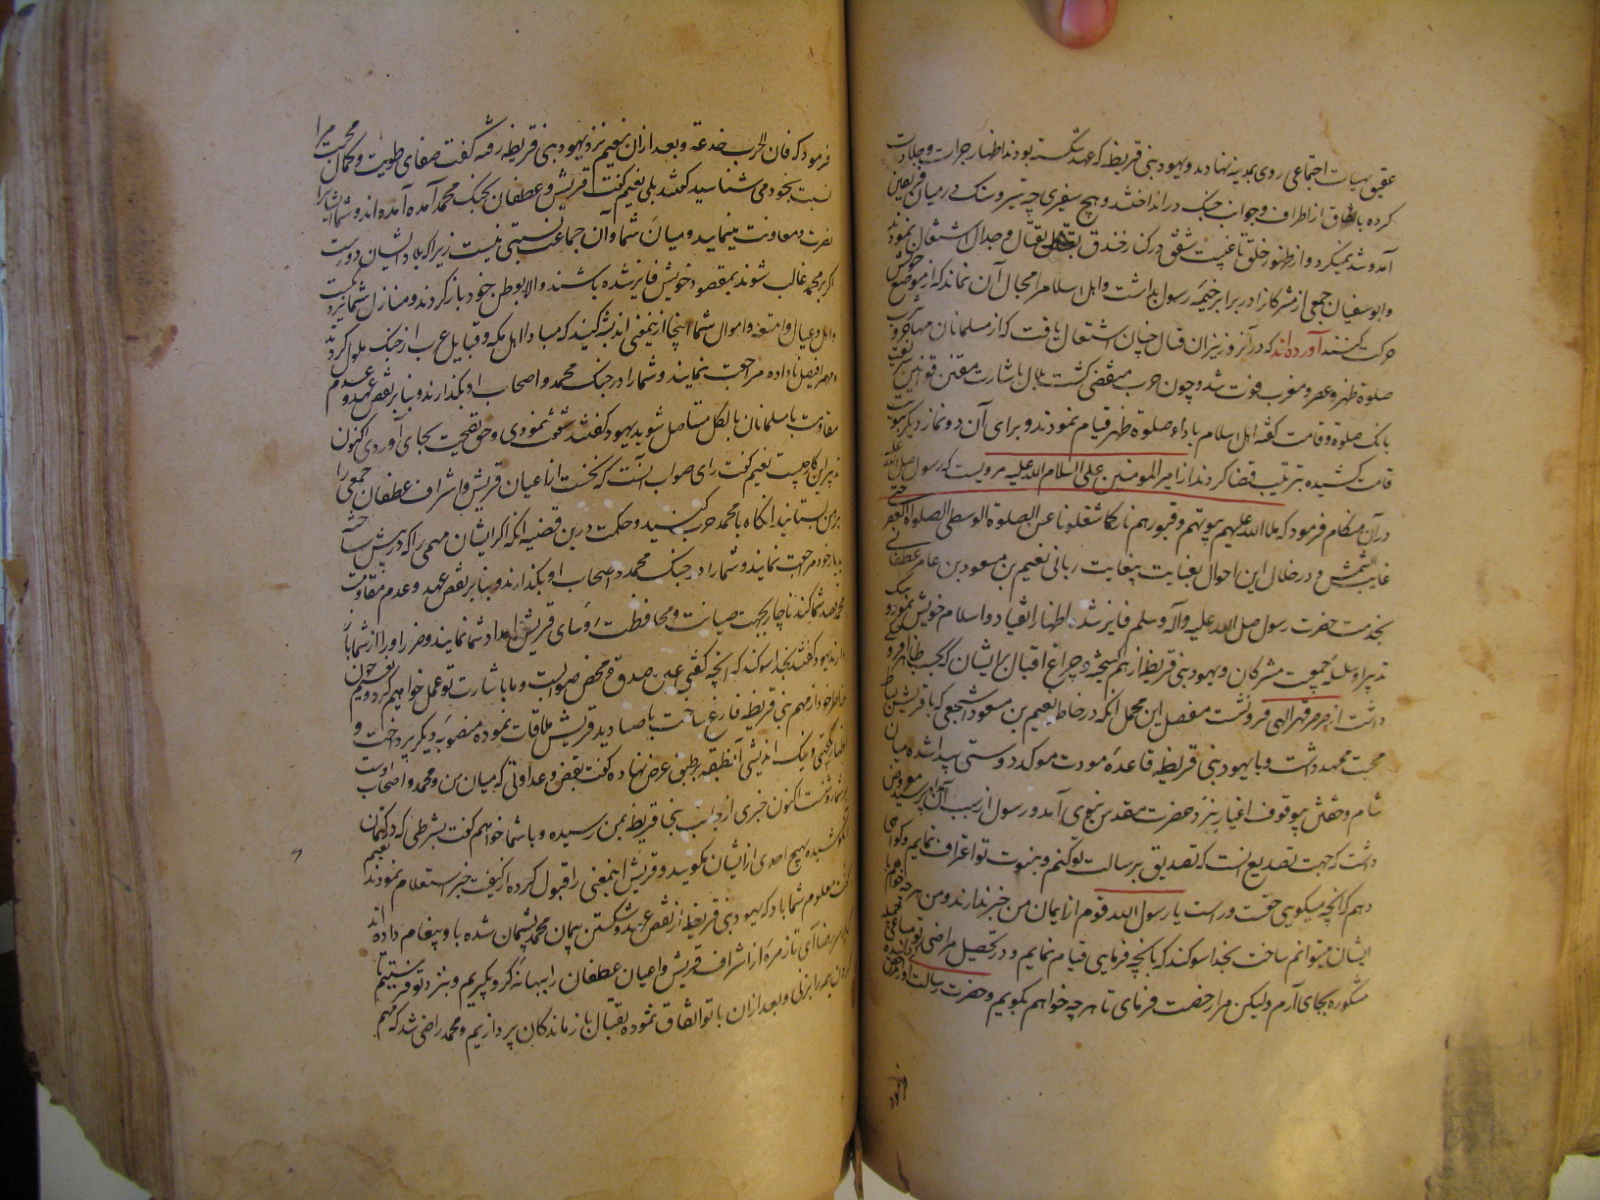 عقیق بهیات اجتماعی روی بمدینه نهادند و یهود بنی قریظه که عهد شکسته بودند اظهار جرات و جلادت
کرده باتفاق از اطراف و جوانب جنک در انداختند و هیچ سفیری جه تیر و سنک در میان فریقین
آمد و شد نمیکرد و از ظهور خلق تا غیبت شفق در کنار خندق بقتال و جدال اشتغال نمودند
و ابو سفیان جمعی از مشرکانرا در برابر خیمه رسول بداشت و اهل اسلام را مجال آن نماند که از موضع خویش
حرکت کنند آورده اند که در آنروز نیران قتال چنان اشتعال یافت که از مسلمانان مهاجر و
صلوة ظهر و عصر و مغرب فوت شد و چون حرب منقضی کشت بلال باشارت مقنن قوانین
بانک صلوة و قامت کفته اهل اسلام باداء صلوة ظهر قیام نمودند و برای آن دو نماز دیکر
قامت کشیده بترتیب قضا کردند از امیر المومنین علی السلام الله علیه مرویست که رسول صلی الله علیه
در آن هنکام فرمود که ملا الله علیهم بیوتهم و قبورهم نارا کما شغلونا عن الصلوة الوسطی الصلوة العصر حتی
غابت الشمس و در خلال این احوال بعنایت بیغایت ربانی نعیم بن مسعود بن عامر غطفانی
بخدمت حضرت رسول صلی الله علیه و آله و سلم فایز شده اظهار انقیاد و اسلام خویش نمود و
تدبیر او سلسله جمعیت مشرکان و یهود بنی قریظه از هم کسیخته و چراغ اقبال ایشان که
داشت از صرصر قهر الهی فرو نشست مفصل این مجمل آنکه در خاطر نعیم بن مسعود اشجعی که با قریش بساط
محبت ممهد داشت و با یهود بنی قریظه قاعده مودت موکد دوستی پیدا شده میان
شام و خفتن بیوقوف اغیار بنزد حضرت مقدس نبوی آمد و رسول از سبب آن پرسید معروض
داشت که جهت تصدیع انست که تصدیق برسالت تو کنم و بنبوت تو اعتراف نمایم و کواهی
دهم که آنچه میکویی حقست و راست یا رسول الله قوم از ایمان من خبر ندارند و من هر چه خواهم با
ایشان میتوانم ساخت بخدا سوکند که بآنچه فرمایی قیام نمایم و در تحصیل مراضی تو
مشکوره بجای آرم و لیکن مرا رخصت فرمای تا هر چه خواهم بکویم و حضرت رسالت
فرمود که فان الحرب خدعة و بعد از ان نعیم نزد یهود بنی قریظه رفته کفت صفای طویت و کمال محبت مرا
نسبت بخود می شناسید کفتند بلی نعیم کفت قریش و غطفان بجنک محمد آمده اند و شما ایشانرا
نصرت و معاونت مینمایید و میان شما و آن جماعت نسبتی نیست زیرا که بلاد ایشان دورست
اکر بر محمد غالب شوند بمقصود خویش فایز شده باشند و الا بوطن خود باز کردند و منازل شما نزدیکست
و اهل و عیال و امتعه و اموال شما اینجا ازینمعنی اندیشه کنید که مبادا اهل مکه و قبایل عرب از جنک ملول کردند
و مهم را فیصل ناداده مراجعت نمایند و شما را در جنک محمد و اصحاب او بکذارند و بنابر نقض عهد و عدم
مقاومت با مسلمانان بالکل مستاصل شوید یهود کفتند شفقت نمودی و حق نصیحت بجای آوردی اکنون
تدبیر این کار چیست نعیم کفت رای صواب آنست که نخست از اعیان قریش و اشراف غطفان جمعی را
برهن بستانید انکاه با محمد حرب کنید و حکمت درین قضیه انکه اکر ایشان مهمی را که در پیش
بدیار خود مراجعت نمایند و شما را در جنک محمد و اصحاب او بکذارند و بنابر نقض عهد و عدم مقاومت
محمد قصد شما کند ناچار بجهت صیانت و محافظت روسای قریش امداد شما نمایند و ضرر او را از شما باز
دارند یهود کفتند بخدا سوکند که آنچه کفتی عین صدق و محض صوابست و ما باشارت تو عمل خواهیم کرد و نعیم چون
خاطر خود از مهم بنی قریظه فارغ ساخت با صنادید قریش ملاقات نموده منصوبه دیکر پرداخت و
اظهار یکجهتی و نیک اندیشی آنطبقه بر طبق عرض نهاده کفت بغض و عداوتی که میان من و محمد و اصحاب اوست
بر شما روشنست اکنون خبری از جانب بنی قریظه بمن رسیده و با شما خواهم کفت بشرطی که در کتمان
آن کوشیده بهیچ احدی از ایشان نکویید و قریش اینمعنی را قبول کرده از کیفیت خبر استعلام نمودند نعیم
کفت معلوم شما باد که یهود بنی قریظه از نقض عهد و شکستن پیمان محمد پشیمان شده باو پیغام داده اند
که تا زمره از اشراف قریش و اعیان غطفان را ببهانه کرو بکیریم و بنزد تو فرستیم تا
کردن همه را بزنی و بعد از ان با تو اتفاق نموده بقتال بازماندکان پردازیم و محمد راضی شد که مهم